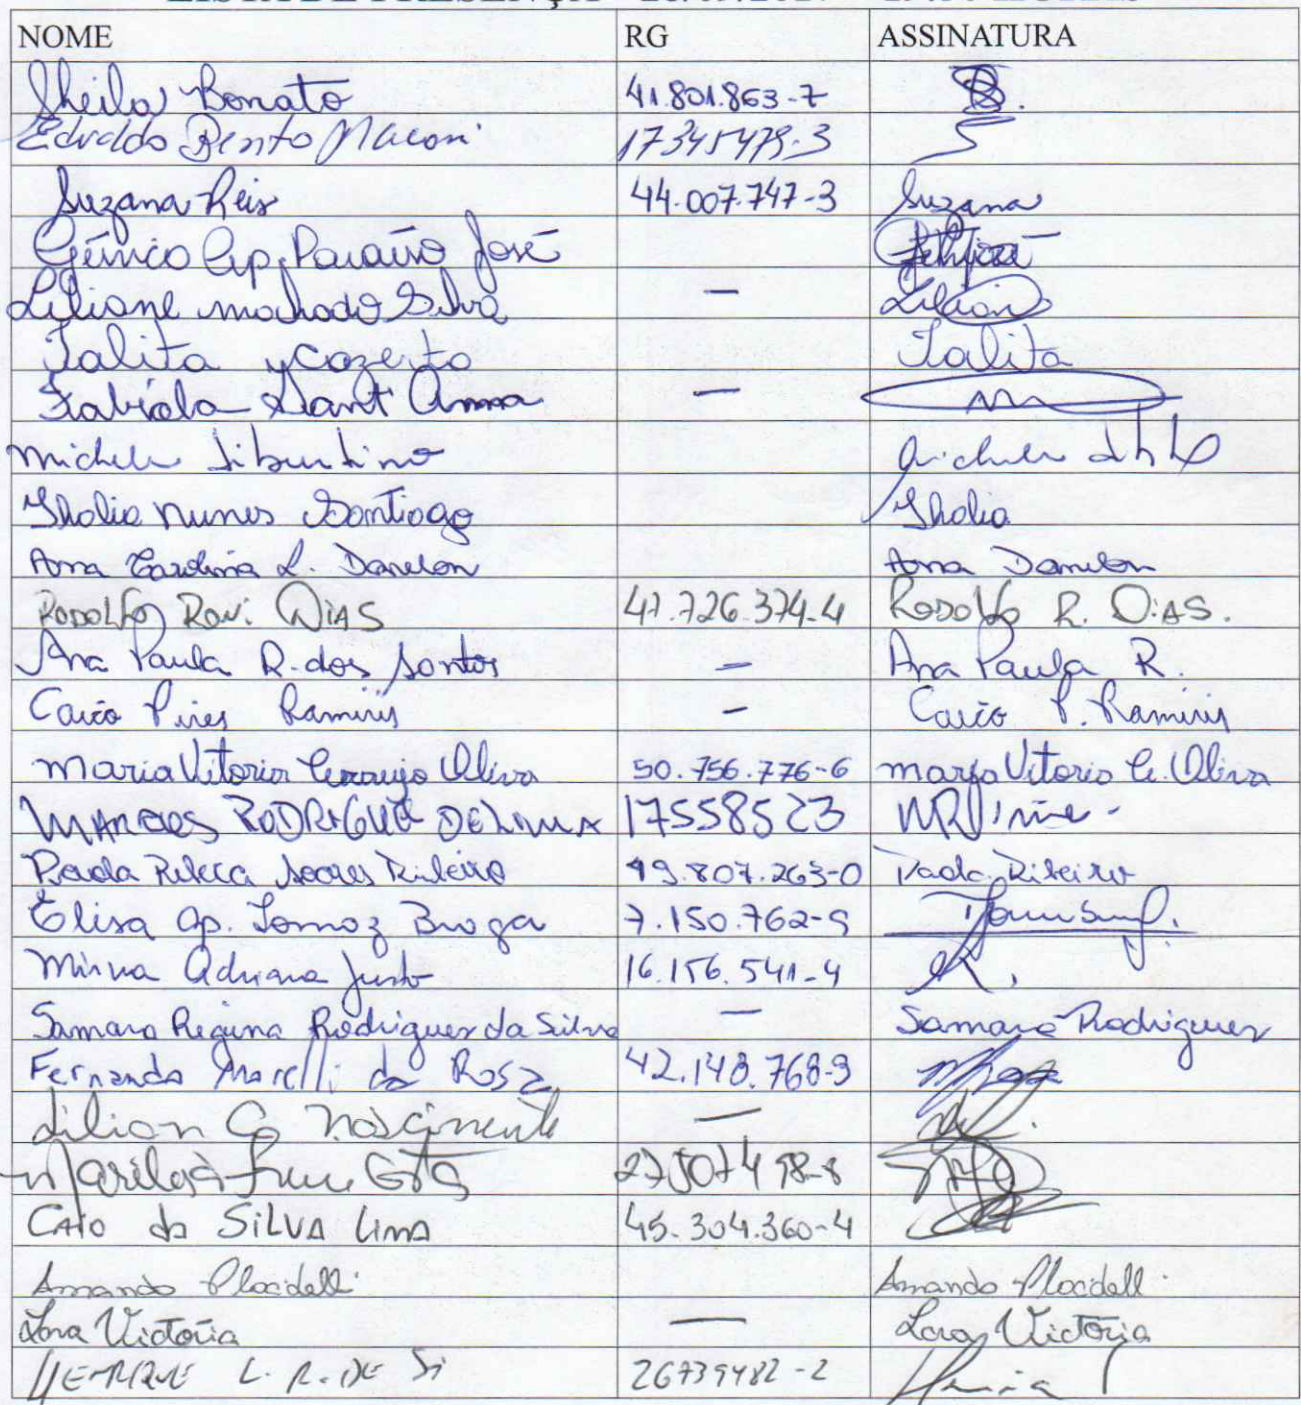 NOME RG ASSINATURA
Sheila Bonato 41.801.863-7
Edvaldo Bento Maconi 17345479-3
Suzana Reis 44.007.747-3 Suzana
Ap. Paraíso José
Liliane machado Silva — Lilian
Talita Talita
Fabíola Sant Anna —
michele Libertino
Thalia nunes Santiago Thalia
Ana Carolina L. Danelon Ana Danelon
RODOLFO DIAS 47.726.374-4 RODOLFO R. DIAS.
Ana Paula R. dos Santos — Ana Paula R.
Caio Pires Ramires — Caio P. Ramires
Maria Vitoria Oliva 50.756.776-6 maria Vitoria Oliva
MARCOS RODRIGUE DE LIMA 17558523
Paola Rebeca Soares Ribeiro 49.807.263-0 Paola Ribeiro
Elisa Ap. Tomaz Braga 7.150.762-9
Adriana Justo 16.156.541-4
Samara Regina Rodrigues da Silva — Samara Rodrigues
Fernanda da Rosa 42.148.768-9
Lilian nascimento —
CAIO da SILVA Lima 45.304.360-4
Placidelli Placidelli
Victória — Victória
HENRIQUE L. R. DE 26739482-2